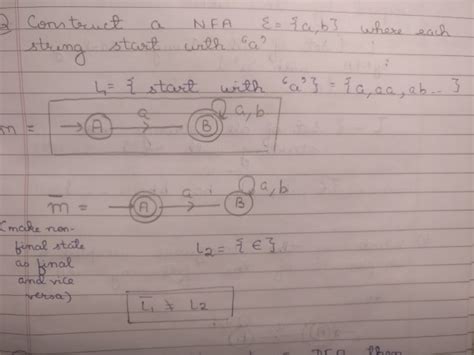 Q Construct a NFA Ɛ = {a,b} where each
string start with "a"
L₁ = { start with "a"} = {a, aa, ab...}
m = → A a B a, b
m̅ = A a B a, b
(make non-
final state
as final
and vice
versa)
L₂ = { ϵ }
L̅₁ ≠ L₂